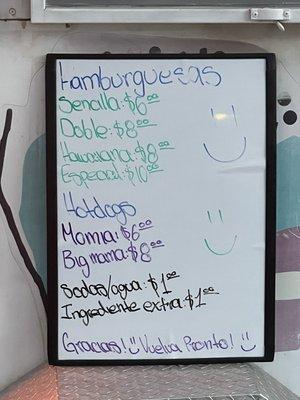 Hamburguesas
Senalla: $6.00
Doble: $8.00
Hawaiiana: $8.00
Especial: $10.00
Hotdogs
Momia: $6.00
Big mama: $8.00
Sodas/agua: $1.00
Ingrediente extra: $1.00
Gracias! Vuelva Pronto!